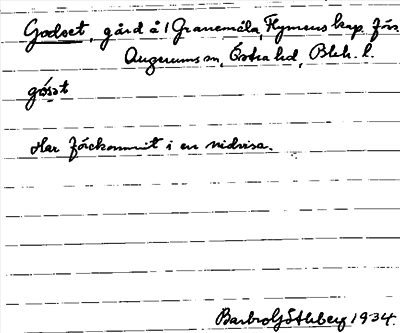 Godset, gård å 1 Granemåla, Flymens kap. förs.
Augerums sn, Östra hd, Blek. l.
gósst
Har förekommit i en nidvisa.
Barbro Götheberg 1934.